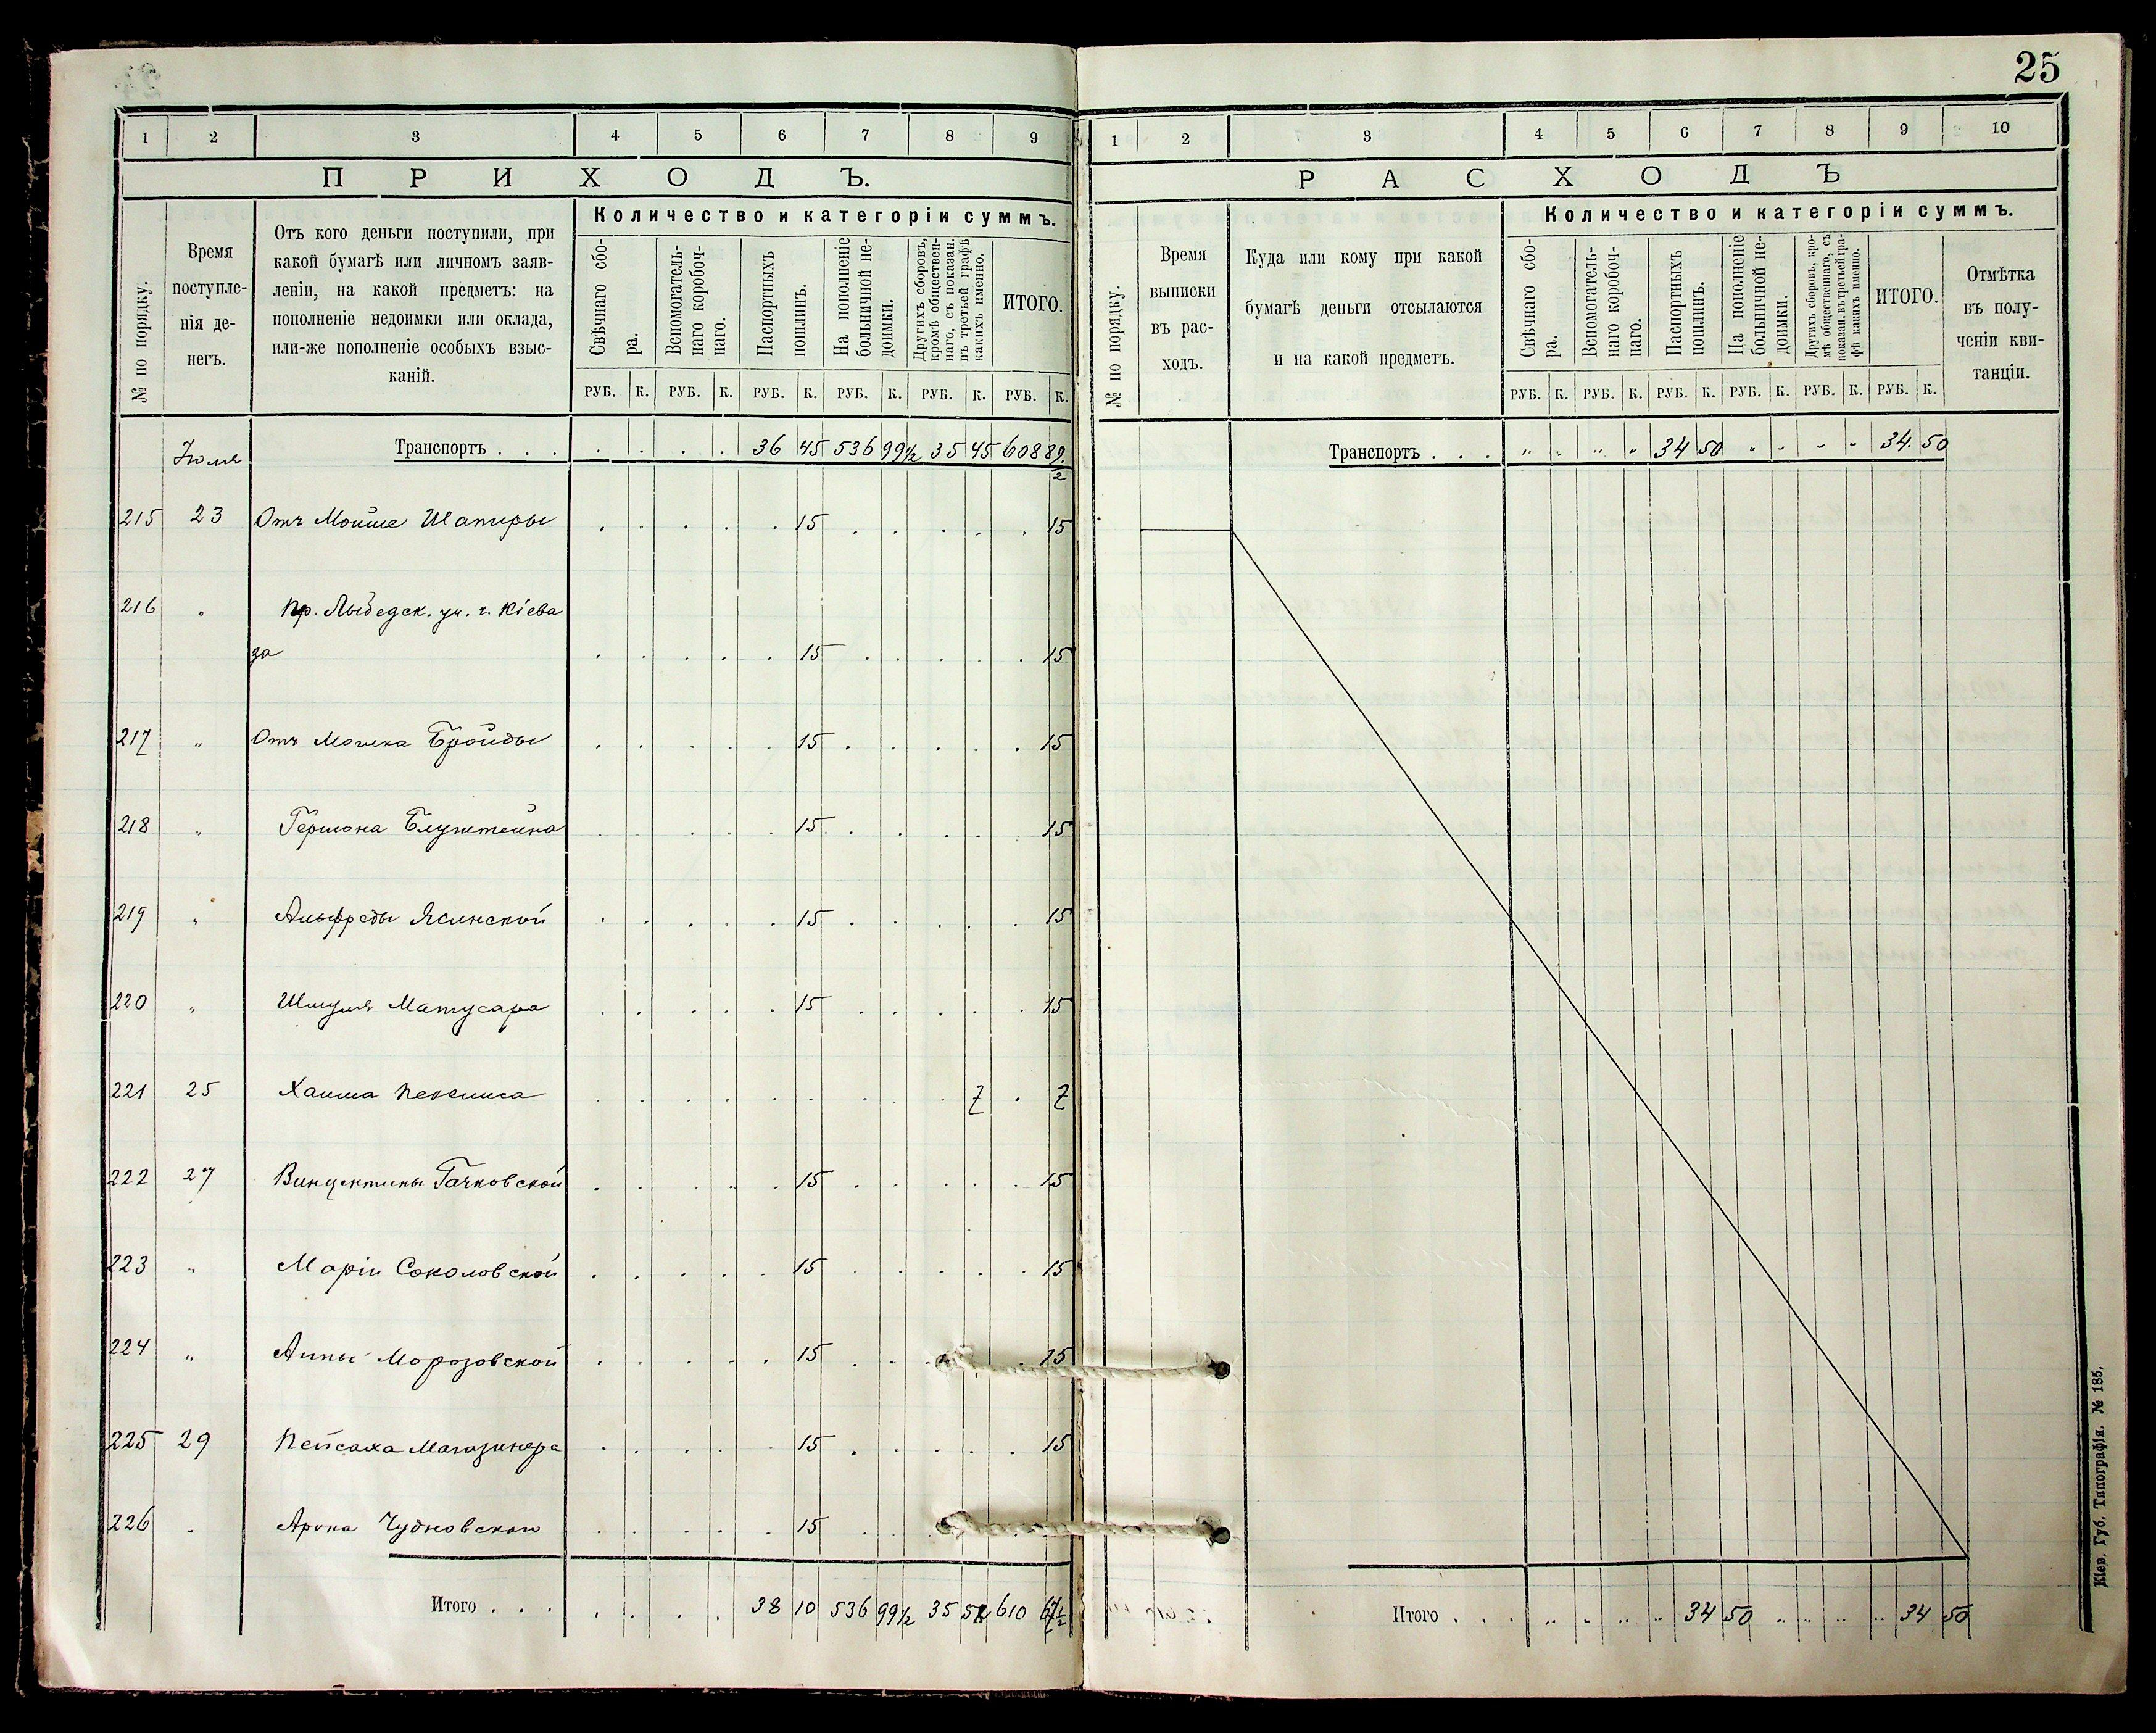 25
1 2 3 4 5 6 7 8 9
ПРИХОДЪ.
№ по порядку.
Время поступле-
нія де-
негъ.
Отъ кого деньги поступили, при
какой бумагѣ или личномъ заяв-
леніи, на какой предметъ: на
пополненіе недоимки или оклада,
или-же пополненіе особыхъ взыс-
каній.
Количество и категоріи суммъ.
Свѣчнаго сбо-
ра.
Вспомогатель-
наго коробоч-
наго.
Паспортныхъ
пошлинъ.
На пополненіе
больничной не-
доимки.
Другихъ сборовъ,
кромѣ обществен-
наго, съ показан.
въ третьей графѣ
какихъ именно.
ИТОГО.
РУБ. К. РУБ. К. РУБ. К. РУБ. К. РУБ. К. РУБ. К.
Іюля Транспортъ . . . 36 45 536 99½ 35 45 608 89½
215 23 Отъ Мойше Шапиры 15 15
216 " Пр. Лыбедск. уч. г. Кіева
за 15 15
217 " Отъ Мошка Бройды 15 15
218 " Гершона Блужтейна 15 15
219 " Альфреды Ясинской 15 15
220 " Шмуля Матусара 15 15
221 25 Хаима Пекелиса 7 7
222 27 Винцентины Гачковской 15 15
223 " Маріи Соколовской 15 15
224 " Анны Морозовской 15 15
225 29 Пейсаха Магазинера 15 15
226 " Арона Чудновскаго 15
Итого . . . 38 10 536 99½ 35 52 610 61½
1 2 3 4 5 6 7 8 9 10
РАСХОДЪ
№ по порядку.
Время
выписки
въ рас-
ходъ.
Куда или кому при какой
бумагѣ деньги отсылаются
и на какой предметъ.
Количество и категоріи суммъ.
Свѣчнаго сбо-
ра.
Вспомогатель-
наго коробоч-
наго.
Паспортныхъ
пошлинъ.
На пополненіе
больничной не-
доимки.
Другихъ сборовъ, кро-
мѣ общественнаго, съ
показан. въ третьей гра-
фѣ какихъ именно.
ИТОГО.
Отмѣтка
въ полу-
ченіи кви-
танціи.
РУБ. К. РУБ. К. РУБ. К. РУБ. К. РУБ. К. РУБ. К.
Транспортъ . . . " " " " 34 50 " " " " 34. 50
Итого . . . " " " " 34 50 " " " " 34 50
Кіев. Губ. Типографія. № 185.